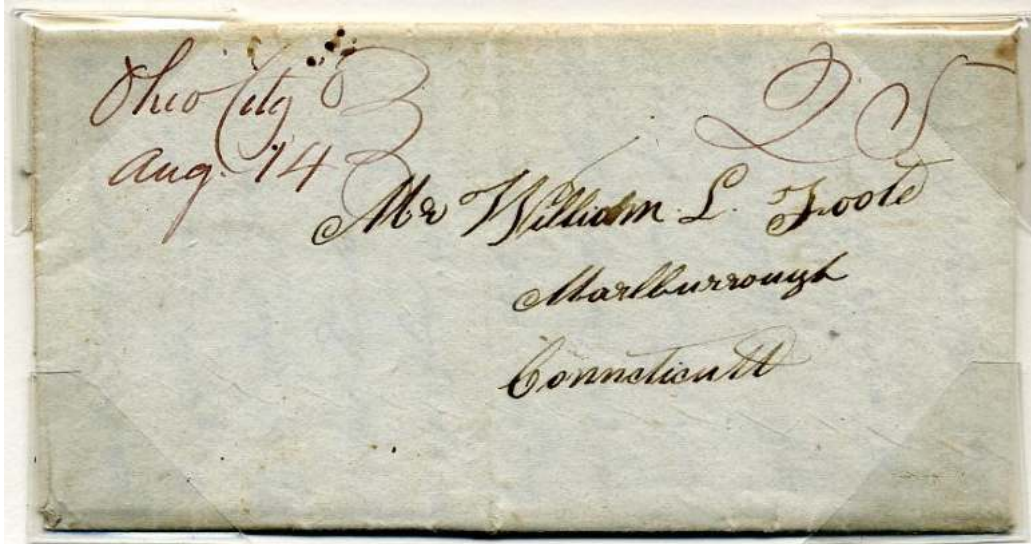 Ohio City O
Aug. 14
25
Mr William L. Foote
Marlburrough
Conneticutt